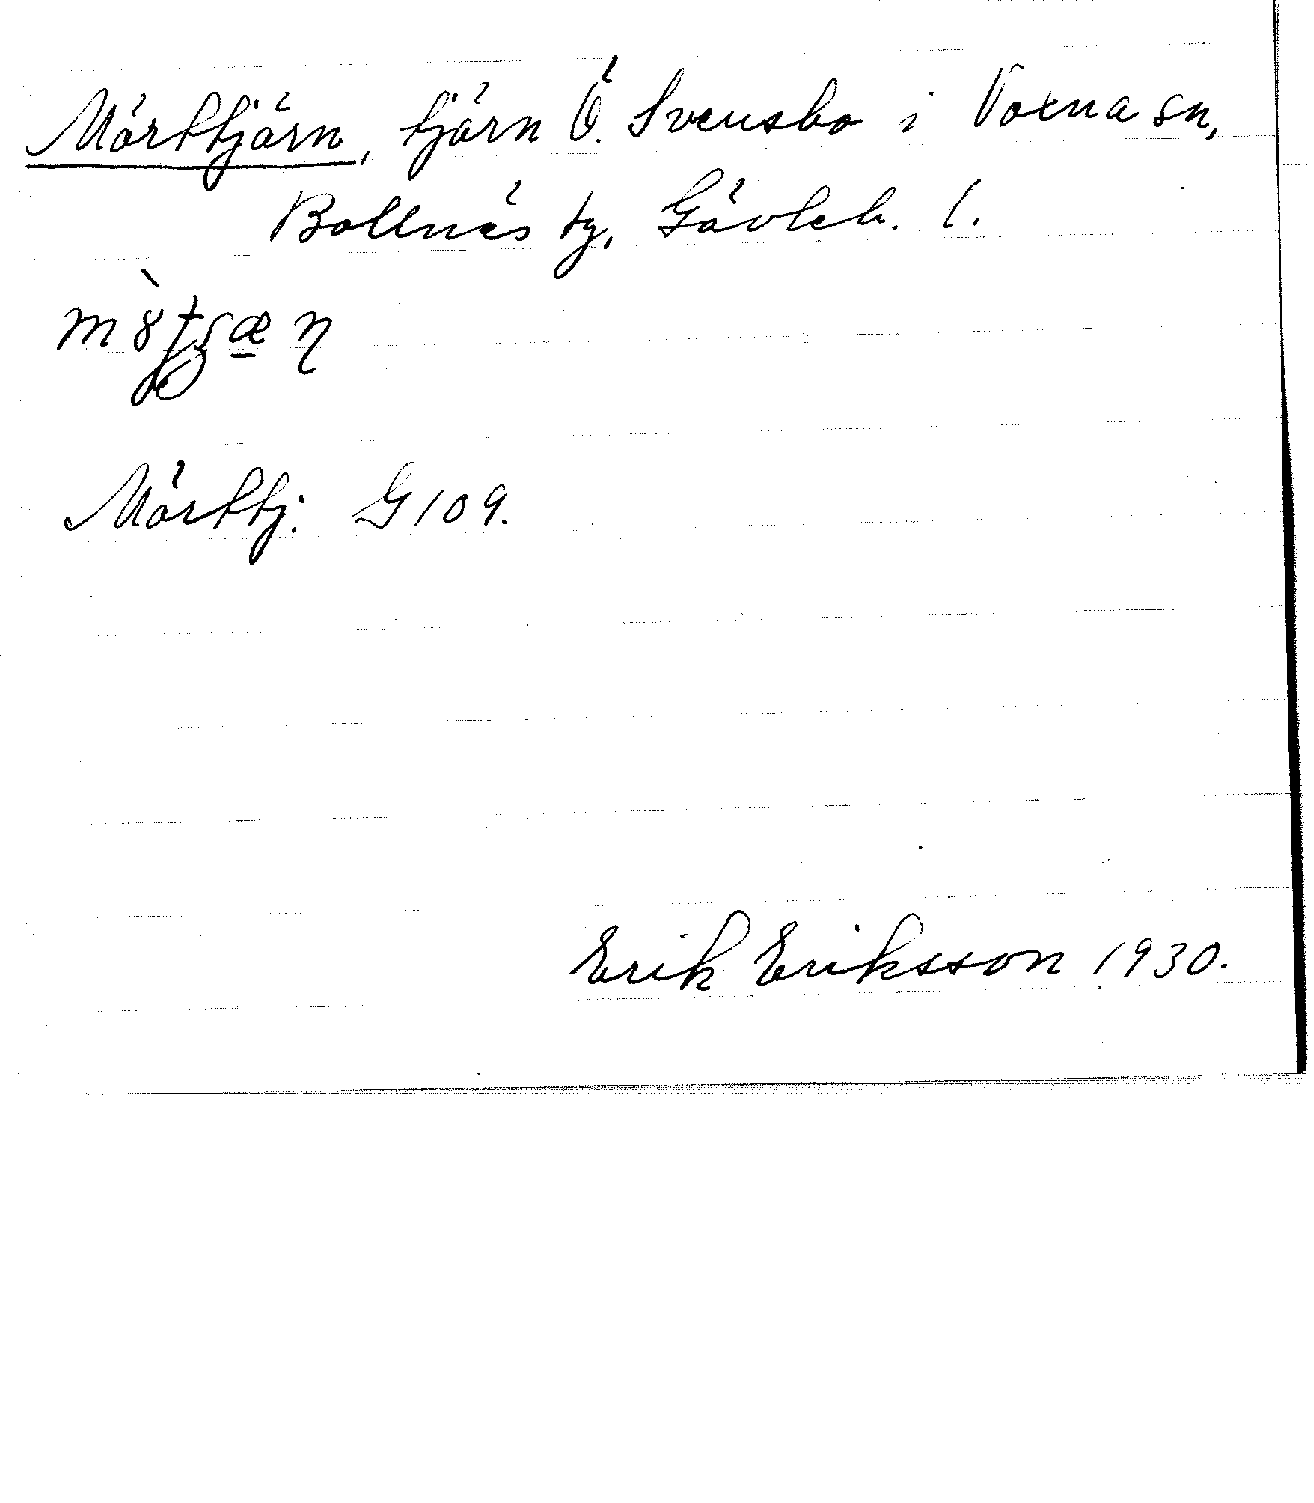 Mörttjärn, tjärn Ö. Svensbo i Voxna sn,
Bollnäs tg, Gävleb. l.
Mörttj. G 109.
Erik Eriksson 1930.